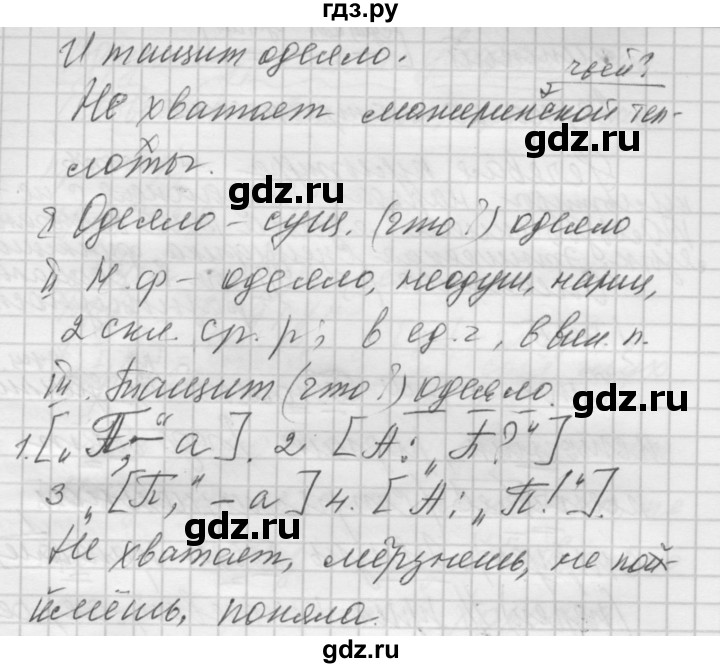 гдз.ру
И тащит одеяло.
чьей?
Не хватает материнской теп-
лоты.
I Одеяло – сущ. (что?) одеяло
II Н.ф – одеяло, неодуш, нариц,
2 скл. ср. р; в ед. ч, в вин. п.
III. Тащит (что?) одеяло.
1. [„П,–“ а]. 2 [А: „П?“]
3 „[П,“ – а] 4. [А: „П!“].
Не хватает, мёрзнешь, не пой-
мёшь, поняла.
gdz.ru
gdz.ru
gdz.ru
gdz.ru
gdz.ru
gdz.ru
gdz.ru